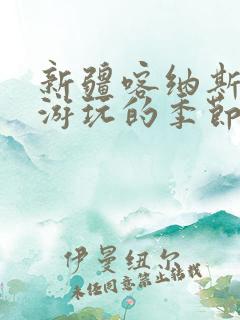 新疆喀纳斯
游玩的季节
伊曼纽尔
未经同意禁止转载